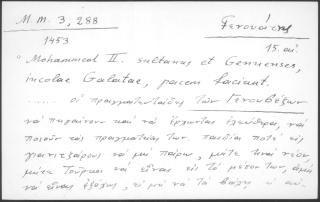 M. m. 3, 288 Γενουάτης
1453 15. αἰ.
Mohammed II. sultanus et Genuenses,
incolae Galatae, pacem faciunt.
...... οἱ πραγματευτάδες τῶν Γενουβέζων
νὰ πηγαίνουν καὶ νὰ ἔρχωνται ἐλεύθερα, νὰ
ποιοῦν τὲς πραγματείας των. παιδία ποτὲ εἰς
γιανιτζάρους νὰ μὴ πάρω, μήτε τινὰ νέον
μήτε Τοῦρκοι νὰ εἶναι εἰς τὸ μέσον των, ἀμὴ
νὰ εἶναι ἔξω, εἰ μὴ νὰ τὸ βάλῃ ἡ αὐ-